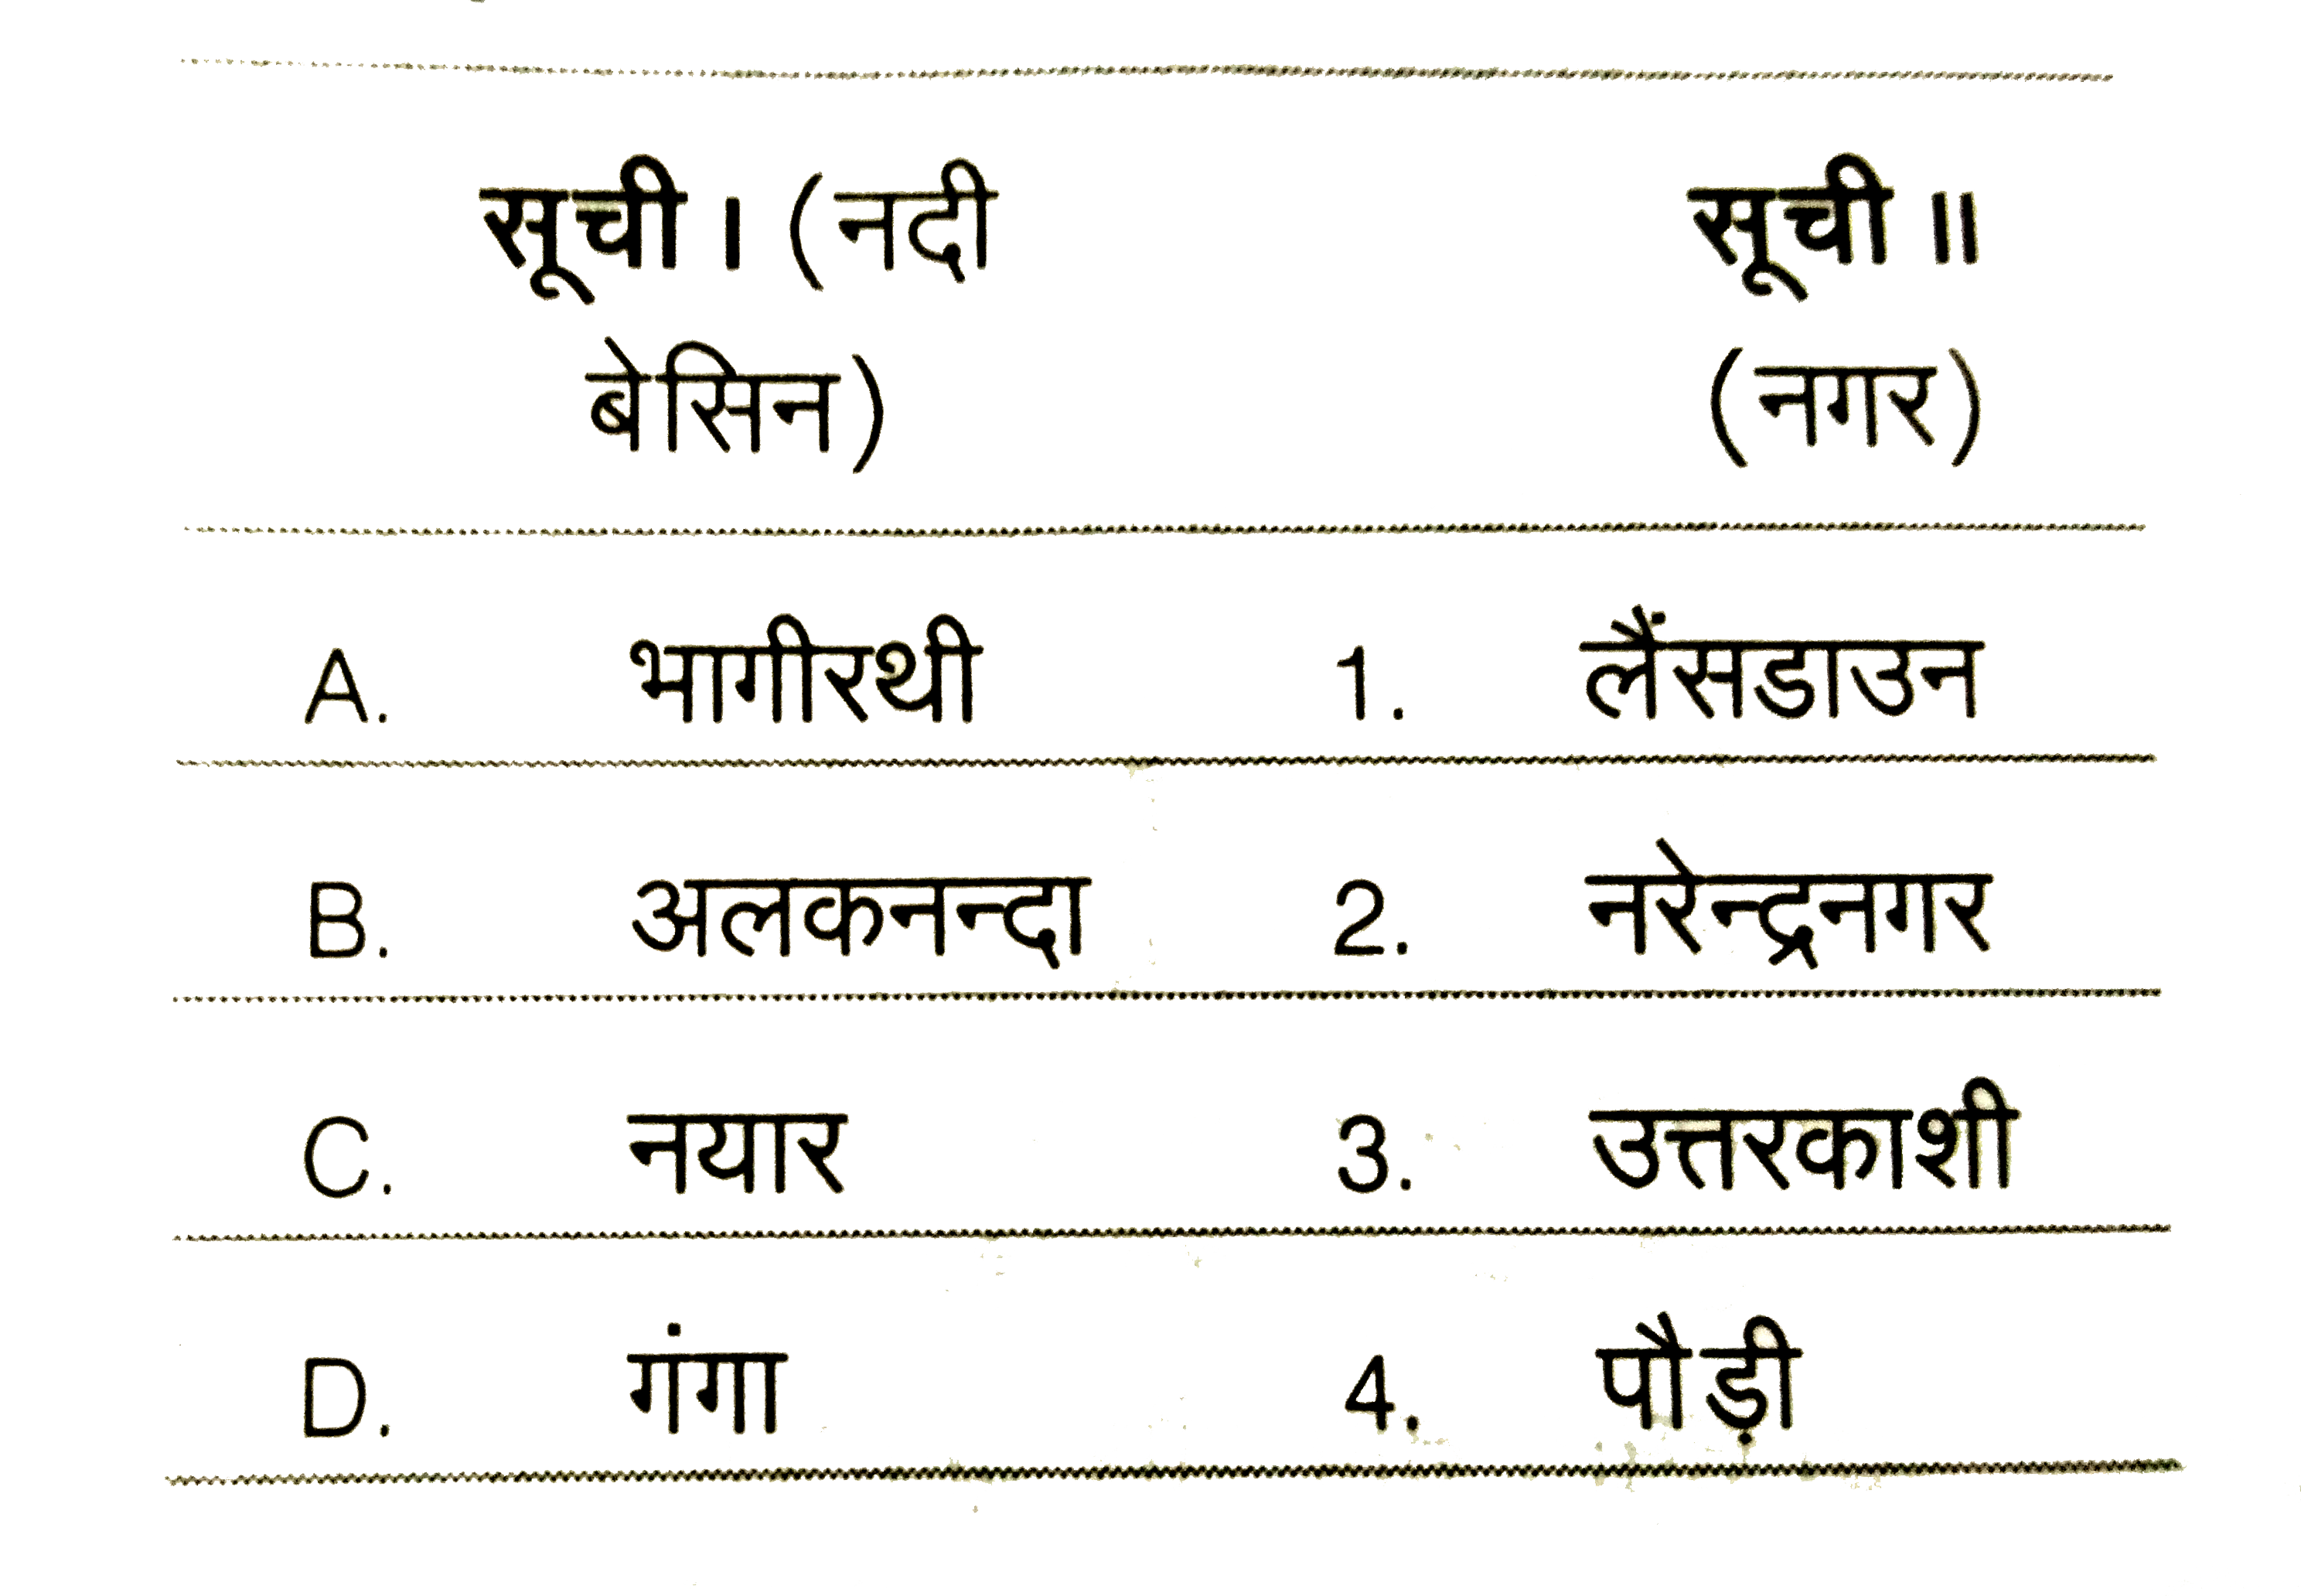 सूची I (नदी सूची II
बेसिन) (नगर)
A. भागीरथी 1. लैंसडाउन
B. अलकनन्दा 2. नरेन्द्रनगर
C. नयार 3. उत्तरकाशी
D. गंगा 4. पौड़ी